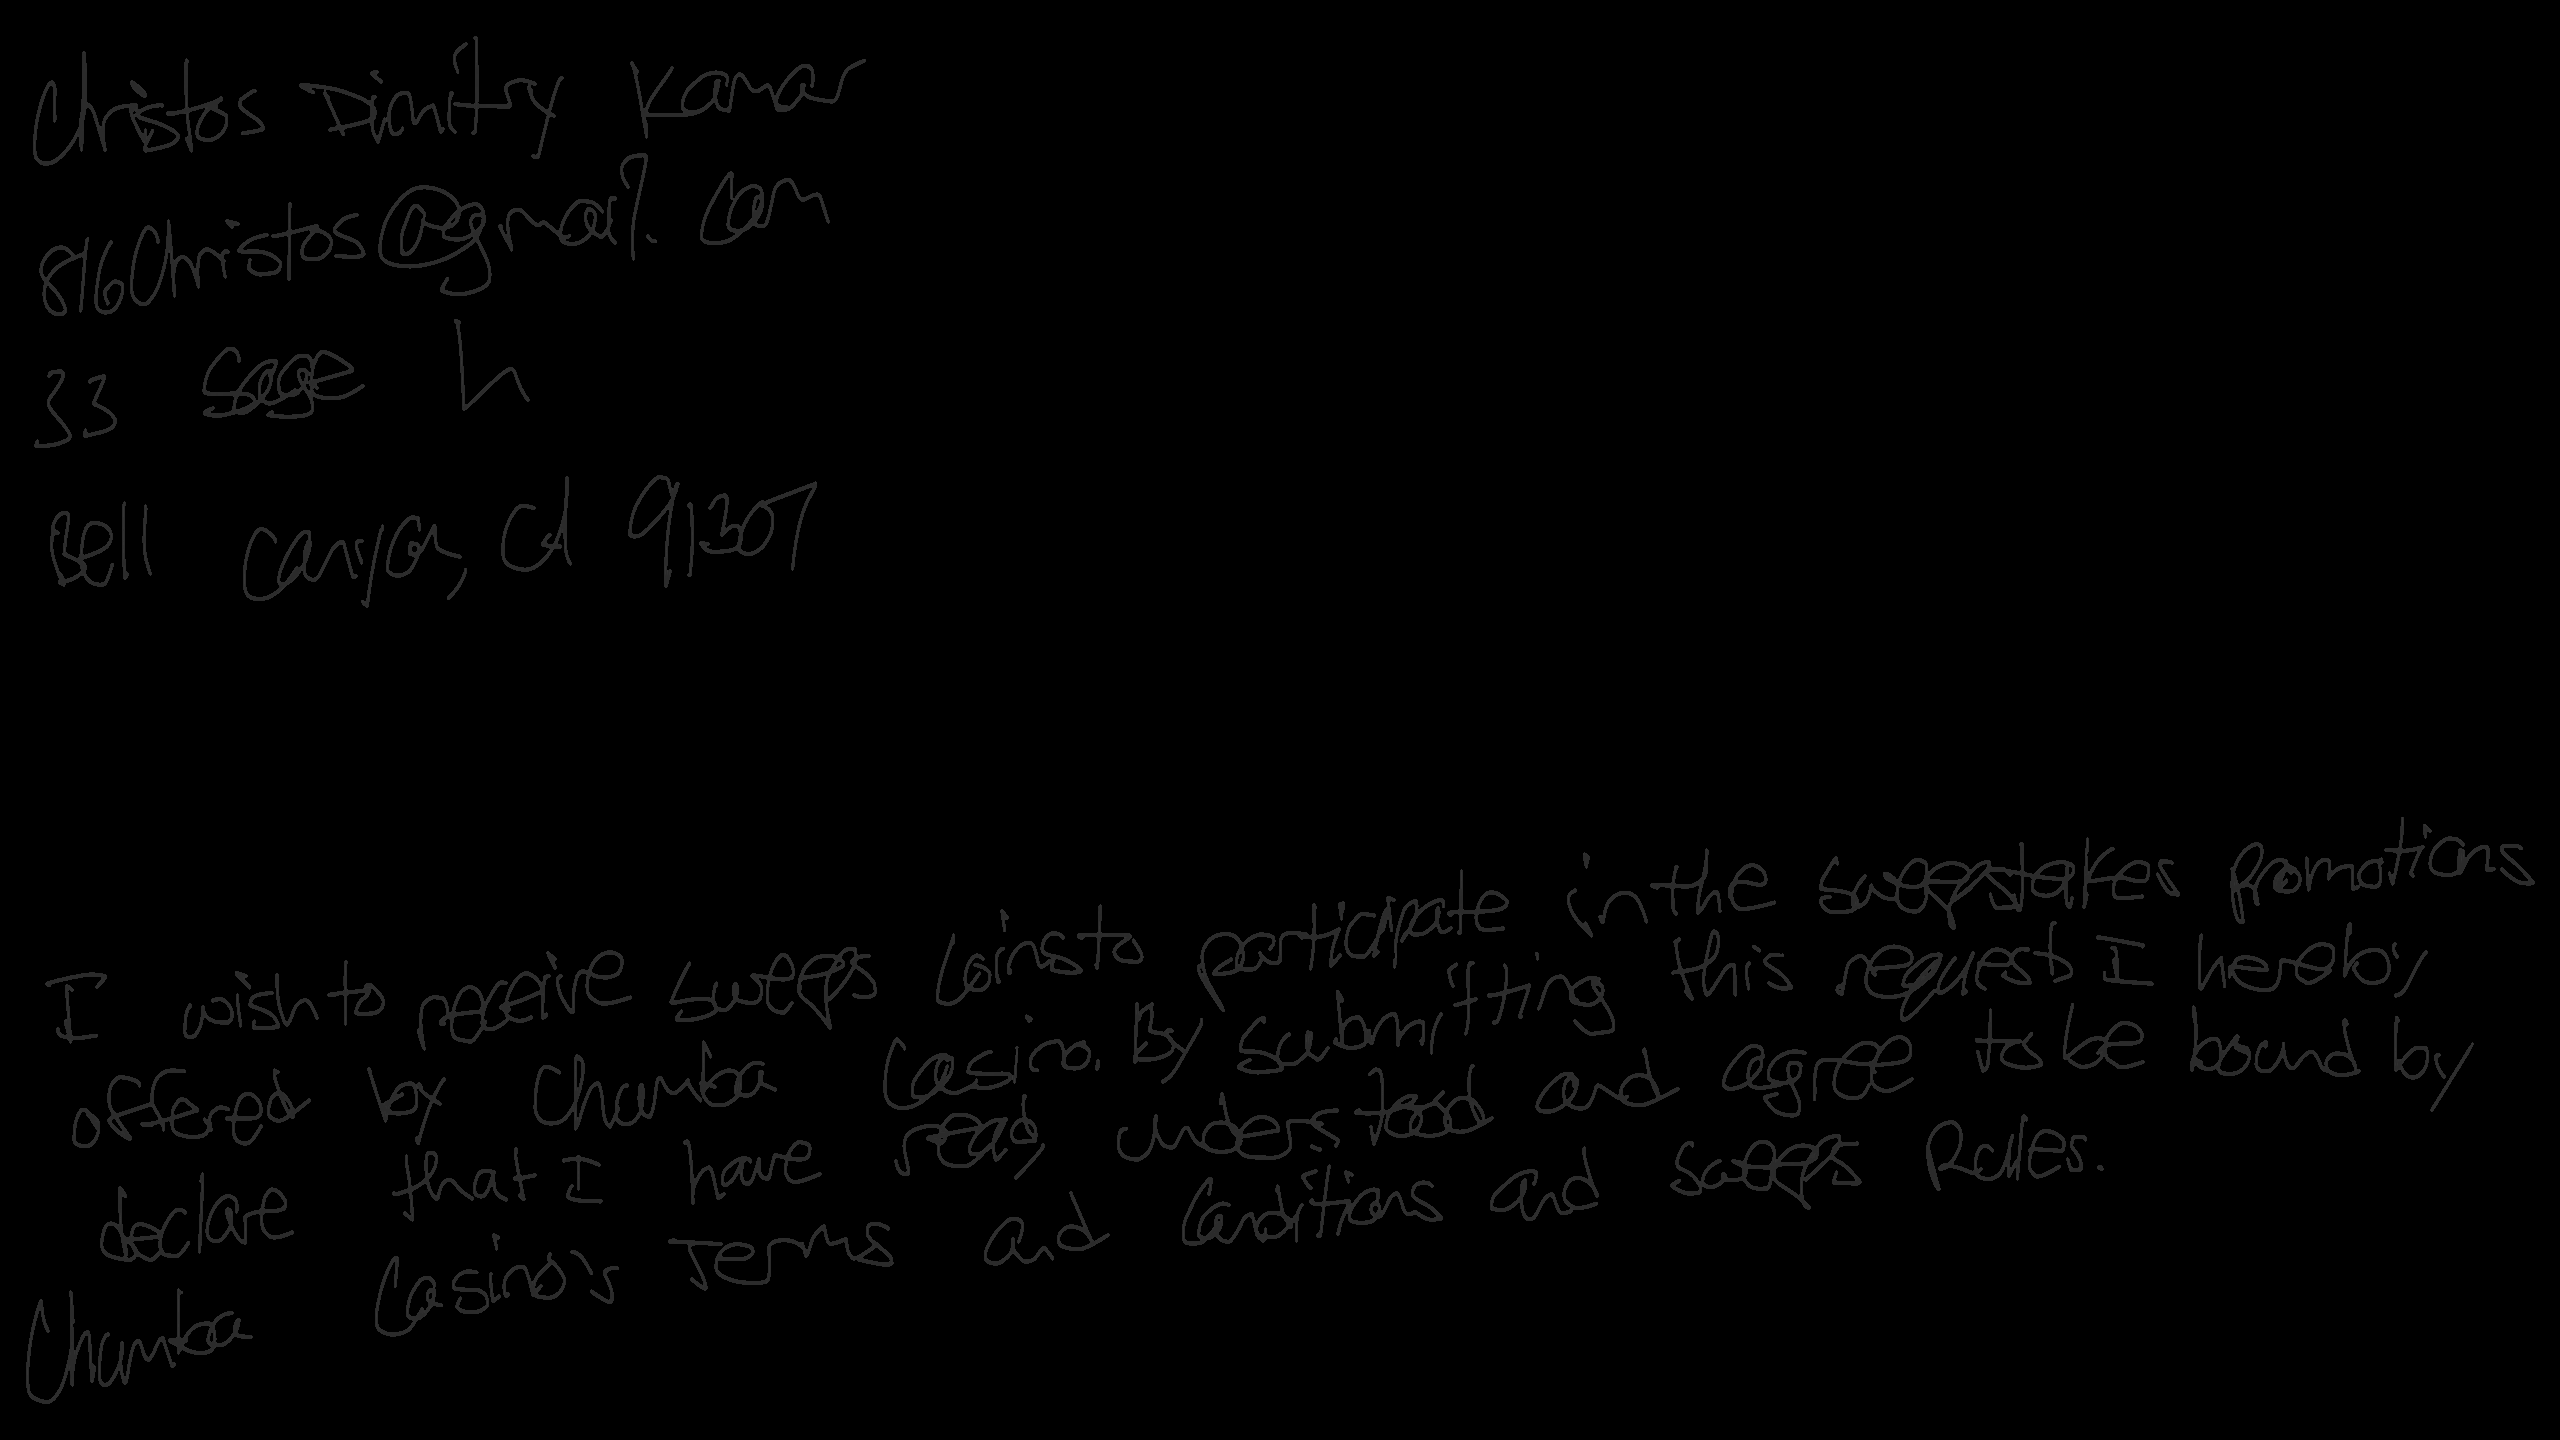 Christos Dimitry Kamar
816Christos@gmail.com
33 Sage Ln
Bell canyon, CA 91307
I wish to receive sweeps coins to participate in the sweepstakes promotions
offered by Chumba Casino. By submitting this request I hereby
declare that I have read, understood and agree to be bound by
Chumba Casino's Terms and Conditions and sweeps Rules.